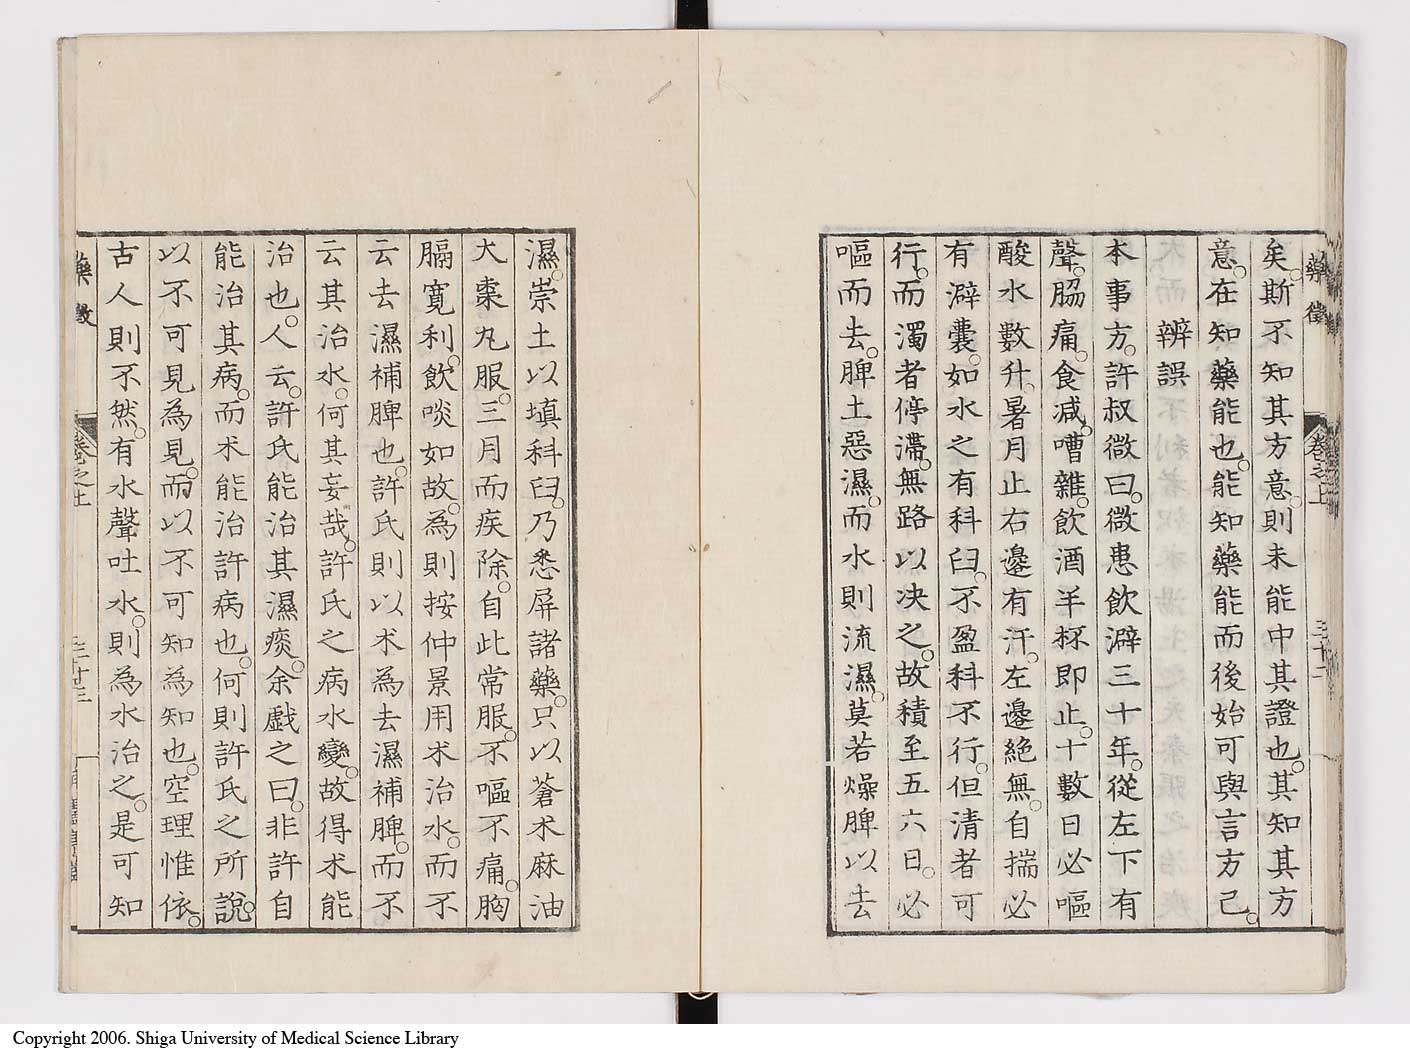 藥徵
卷之上
三十二
矣。斯不知其方意。則未能中其證也。其知其方
意。在知藥能也。能知藥能而後始可與言方已。
辨誤
本事方。許叔微曰。微患飲澼三十年。從左下有
聲。脇痛。食減。嘈雜。飲酒半杯即止。十數日必嘔
酸水數升。暑月止右邊有汗。左邊絕無。自揣必
有澼囊。如水之有科臼。不盈科不行。但清者可
行。而濁者停滯。無路以決之。故積至五六日。必
嘔而去。脾土惡濕。而水則流濕。莫若燥脾以去
濕。崇土以填科臼。乃悉屏諸藥。只以蒼朮麻油
大棗丸服。三月而疾除。自此常服。不嘔不痛。胸
膈寬利。飲啖如故。為則按仲景用朮治水。而不
云去濕補脾也。許氏則以朮為去濕補脾。而不
云其治水。何其妄哉。許氏之病水變。故得朮能
治也。人云。許氏能治其濕痰。余戲之曰。非許自
能治其病。而朮能治許病也。何則許氏之所說。
以不可見為見。而以不可知為知也。空理惟依。
古人則不然。有水聲吐水。則為水治之。是可知
藥徵
卷之上
三十三